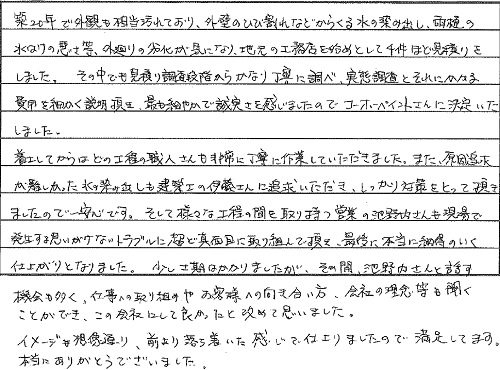 築20年で外観も相当汚れており、外壁のひび割れなどからくる水の染み出し、雨樋の
水はけの悪さ等、外廻りの劣化が気になり、地元の工務店を始めとして4件ほど見積りを
しました。 その中でも見積り調査段階からかなり丁寧に調べ、実態調査とそれにかかる
費用を細かく説明頂き、最も細やかで誠実さを感じましたのでゴーゴーペイントさんに決定いた
しました。
着工してからはどの工程の職人さんも非常に丁寧に作業していただきました。また、原因追求
が難しかった水の染み出しも建築士の伊藤さんに追求いただき、しっかり対策をとって頂き
ましたので一安心です。そして様々な工程の間を取り持つ営業の池野内さんも現場で
発生する思いがけないトラブルに超ど真面目に取り組んで頂き、最後に本当に納得のいく
仕上がりとなりました。 少し工期はかかりましたが、その間、池野内さんと話す
機会も多く、仕事への取り組みやお客様への向き合い方、会社の理念等も聞く
ことができ、この会社にして良かったと改めて思いました。
イメージも想像通り、前より落ち着いた感じで仕上りましたので満足してます。
本当にありがとうございました。